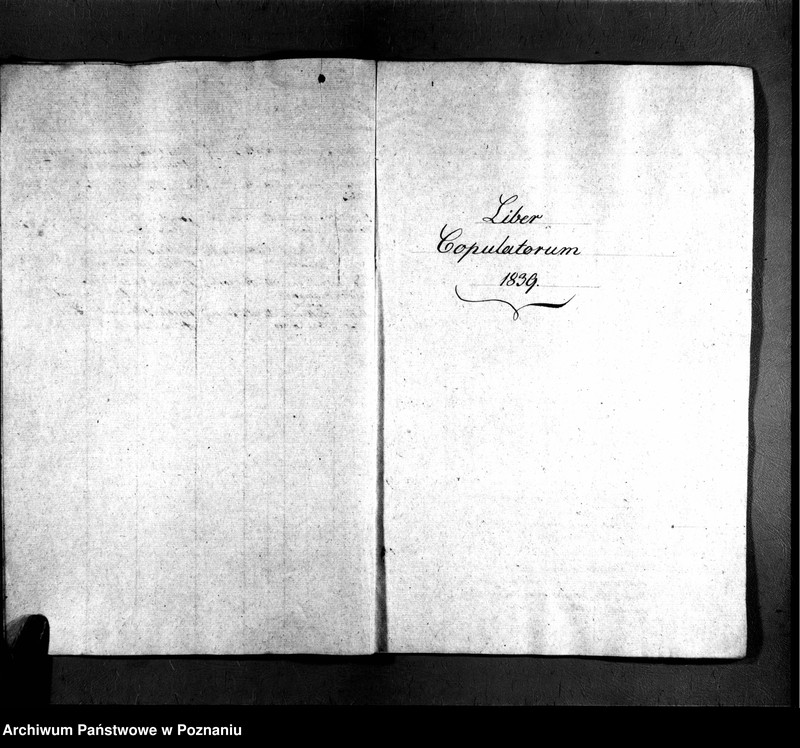 Liber
Copulatorum
1839.
Archiwum Państwowe w Poznaniu